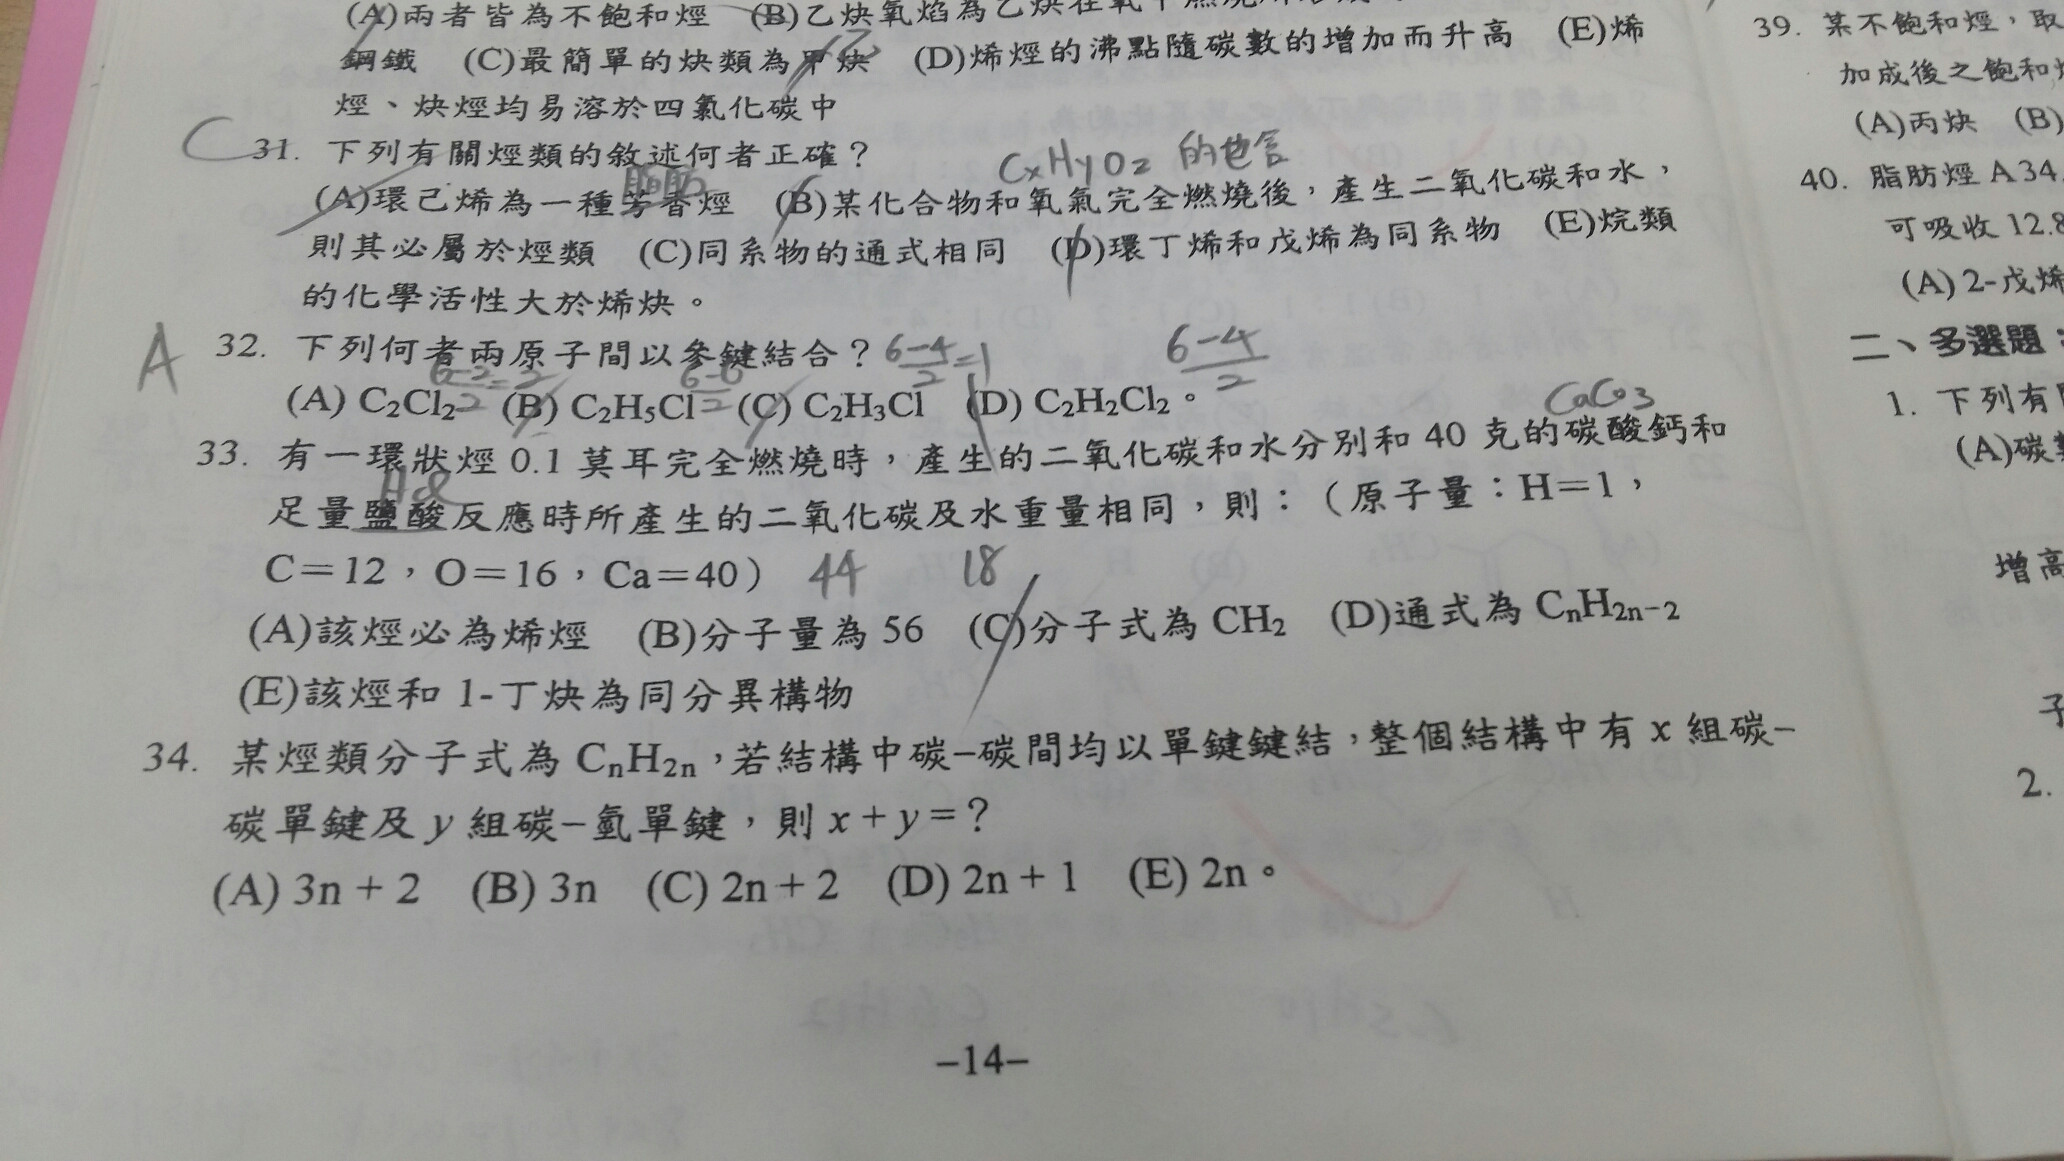 (A)兩者皆為不飽和烴 (B)乙炔氧焰為乙炔在氧中燃燒
鋼鐵 (C)最簡單的炔類為甲炔 (D)烯烴的沸點隨碳數的增加而升高 (E)烯
乙
烴、炔烴均易溶於四氯化碳中
C 31. 下列有關烴類的敘述何者正確？
CxHyO2 的也會
脂肪
(A)環己烯為一種芳香烴 (B)某化合物和氧氣完全燃燒後，產生二氧化碳和水，
則其必屬於烴類 (C)同系物的通式相同 (D)環丁烯和戊烯為同系物 (E)烷類
的化學活性大於烯炔。
A 32. 下列何者兩原子間以參鍵結合？ 6-4/2=1 6-4/2
6-2/2=2 6-6/2
(A) C₂Cl₂ (B) C₂H₅Cl (C) C₂H₃Cl (D) C₂H₂Cl₂。
CaCO3
33. 有一環狀烴 0.1 莫耳完全燃燒時，產生的二氧化碳和水分別和 40 克的碳酸鈣和
HCl
足量鹽酸反應時所產生的二氧化碳及水重量相同，則：（原子量：H＝1，
C＝12，O＝16，Ca＝40） 44 18
(A)該烴必為烯烴 (B)分子量為 56 (C)分子式為 CH₂ (D)通式為 CₙH₂ₙ₋₂
(E)該烴和 1-丁炔為同分異構物
34. 某烴類分子式為 CₙH₂ₙ，若結構中碳－碳間均以單鍵鍵結，整個結構中有 x 組碳－
碳單鍵及 y 組碳－氫單鍵，則 x + y =？
(A) 3n + 2 (B) 3n (C) 2n + 2 (D) 2n + 1 (E) 2n。
–14–
39. 某不飽和烴，取
加成後之飽和
(A)丙炔 (B)
40. 脂肪烴 A 34.
可吸收 12.8
(A) 2-戊烯
二、多選題：
1. 下列有
(A)碳
增高
子
2.